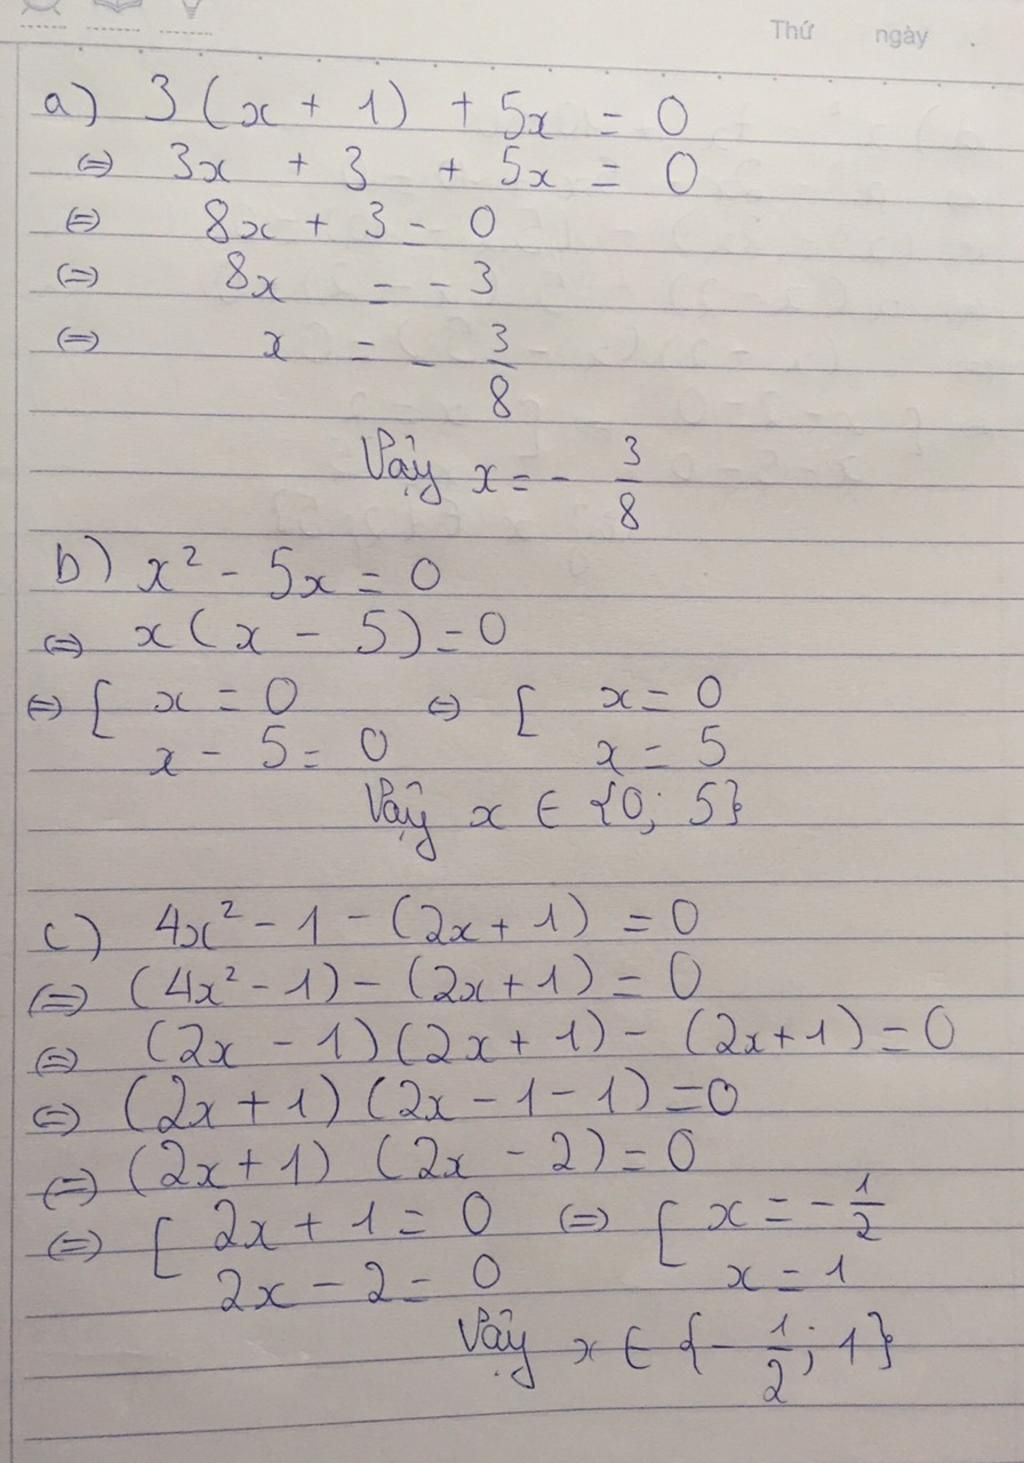 Thứ ngày .
a) 3(x + 1) + 5x = 0
⇔ 3x + 3 + 5x = 0
⇔ 8x + 3 = 0
⇔ 8x = - 3
⇔ x = - 3/8
Vậy x = - 3/8
b) x² - 5x = 0
⇔ x(x - 5) = 0
⇔ [ x = 0 ⇔ [ x = 0
x - 5 = 0 x = 5
Vậy x ∈ {0; 5}
c) 4x² - 1 - (2x + 1) = 0
⇔ (4x² - 1) - (2x + 1) = 0
⇔ (2x - 1)(2x + 1) - (2x + 1) = 0
⇔ (2x + 1)(2x - 1 - 1) = 0
⇔ (2x + 1) (2x - 2) = 0
⇔ [ 2x + 1 = 0 ⇔ [ x = - 1/2
2x - 2 = 0 x = 1
Vậy x ∈ {- 1/2; 1}